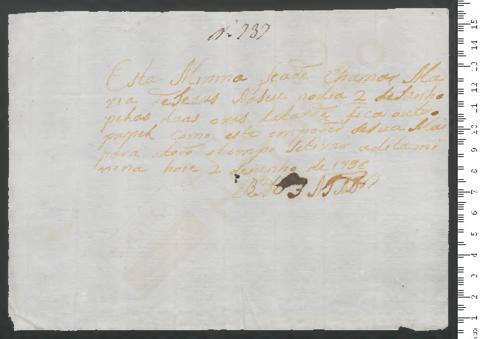 Nº 737
Esta Minina Seade Chamar Ma
ria deJesus Naseu nodia 2 deJunho
pelas duas oras datarde fica outro
papel como este empoder desua Mai
para atodo otempo setirar adita mi
nina hoie 2 deJunho de 1796